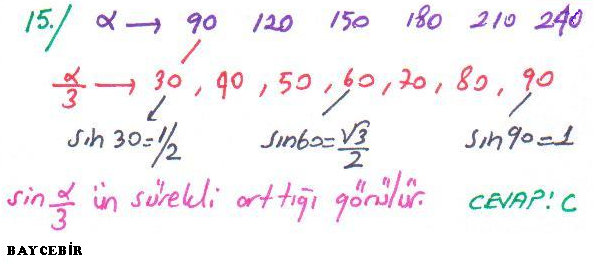 15./ α → 90 120 150 180 210 240
α/3 → 30, 40, 50, 60, 70, 80, 90
sin 30 = 1/2 sin60 = √3/2 sin 90 = 1
sin α/3 ün sürekli arttığı görülür. CEVAP: C
BAYCEBİR